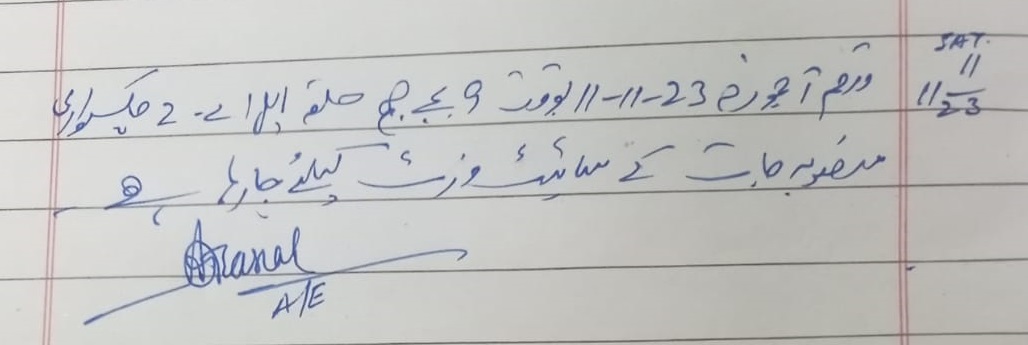 SAT.
11
11
23
آج مورخہ 23-11-11 بوقت 9 بجے صبح حلقہ ایل اے-2 چکسواری
منصوبہ جات کے سائیٹ وزٹ کیلئے جا رہا ہے۔
A/E